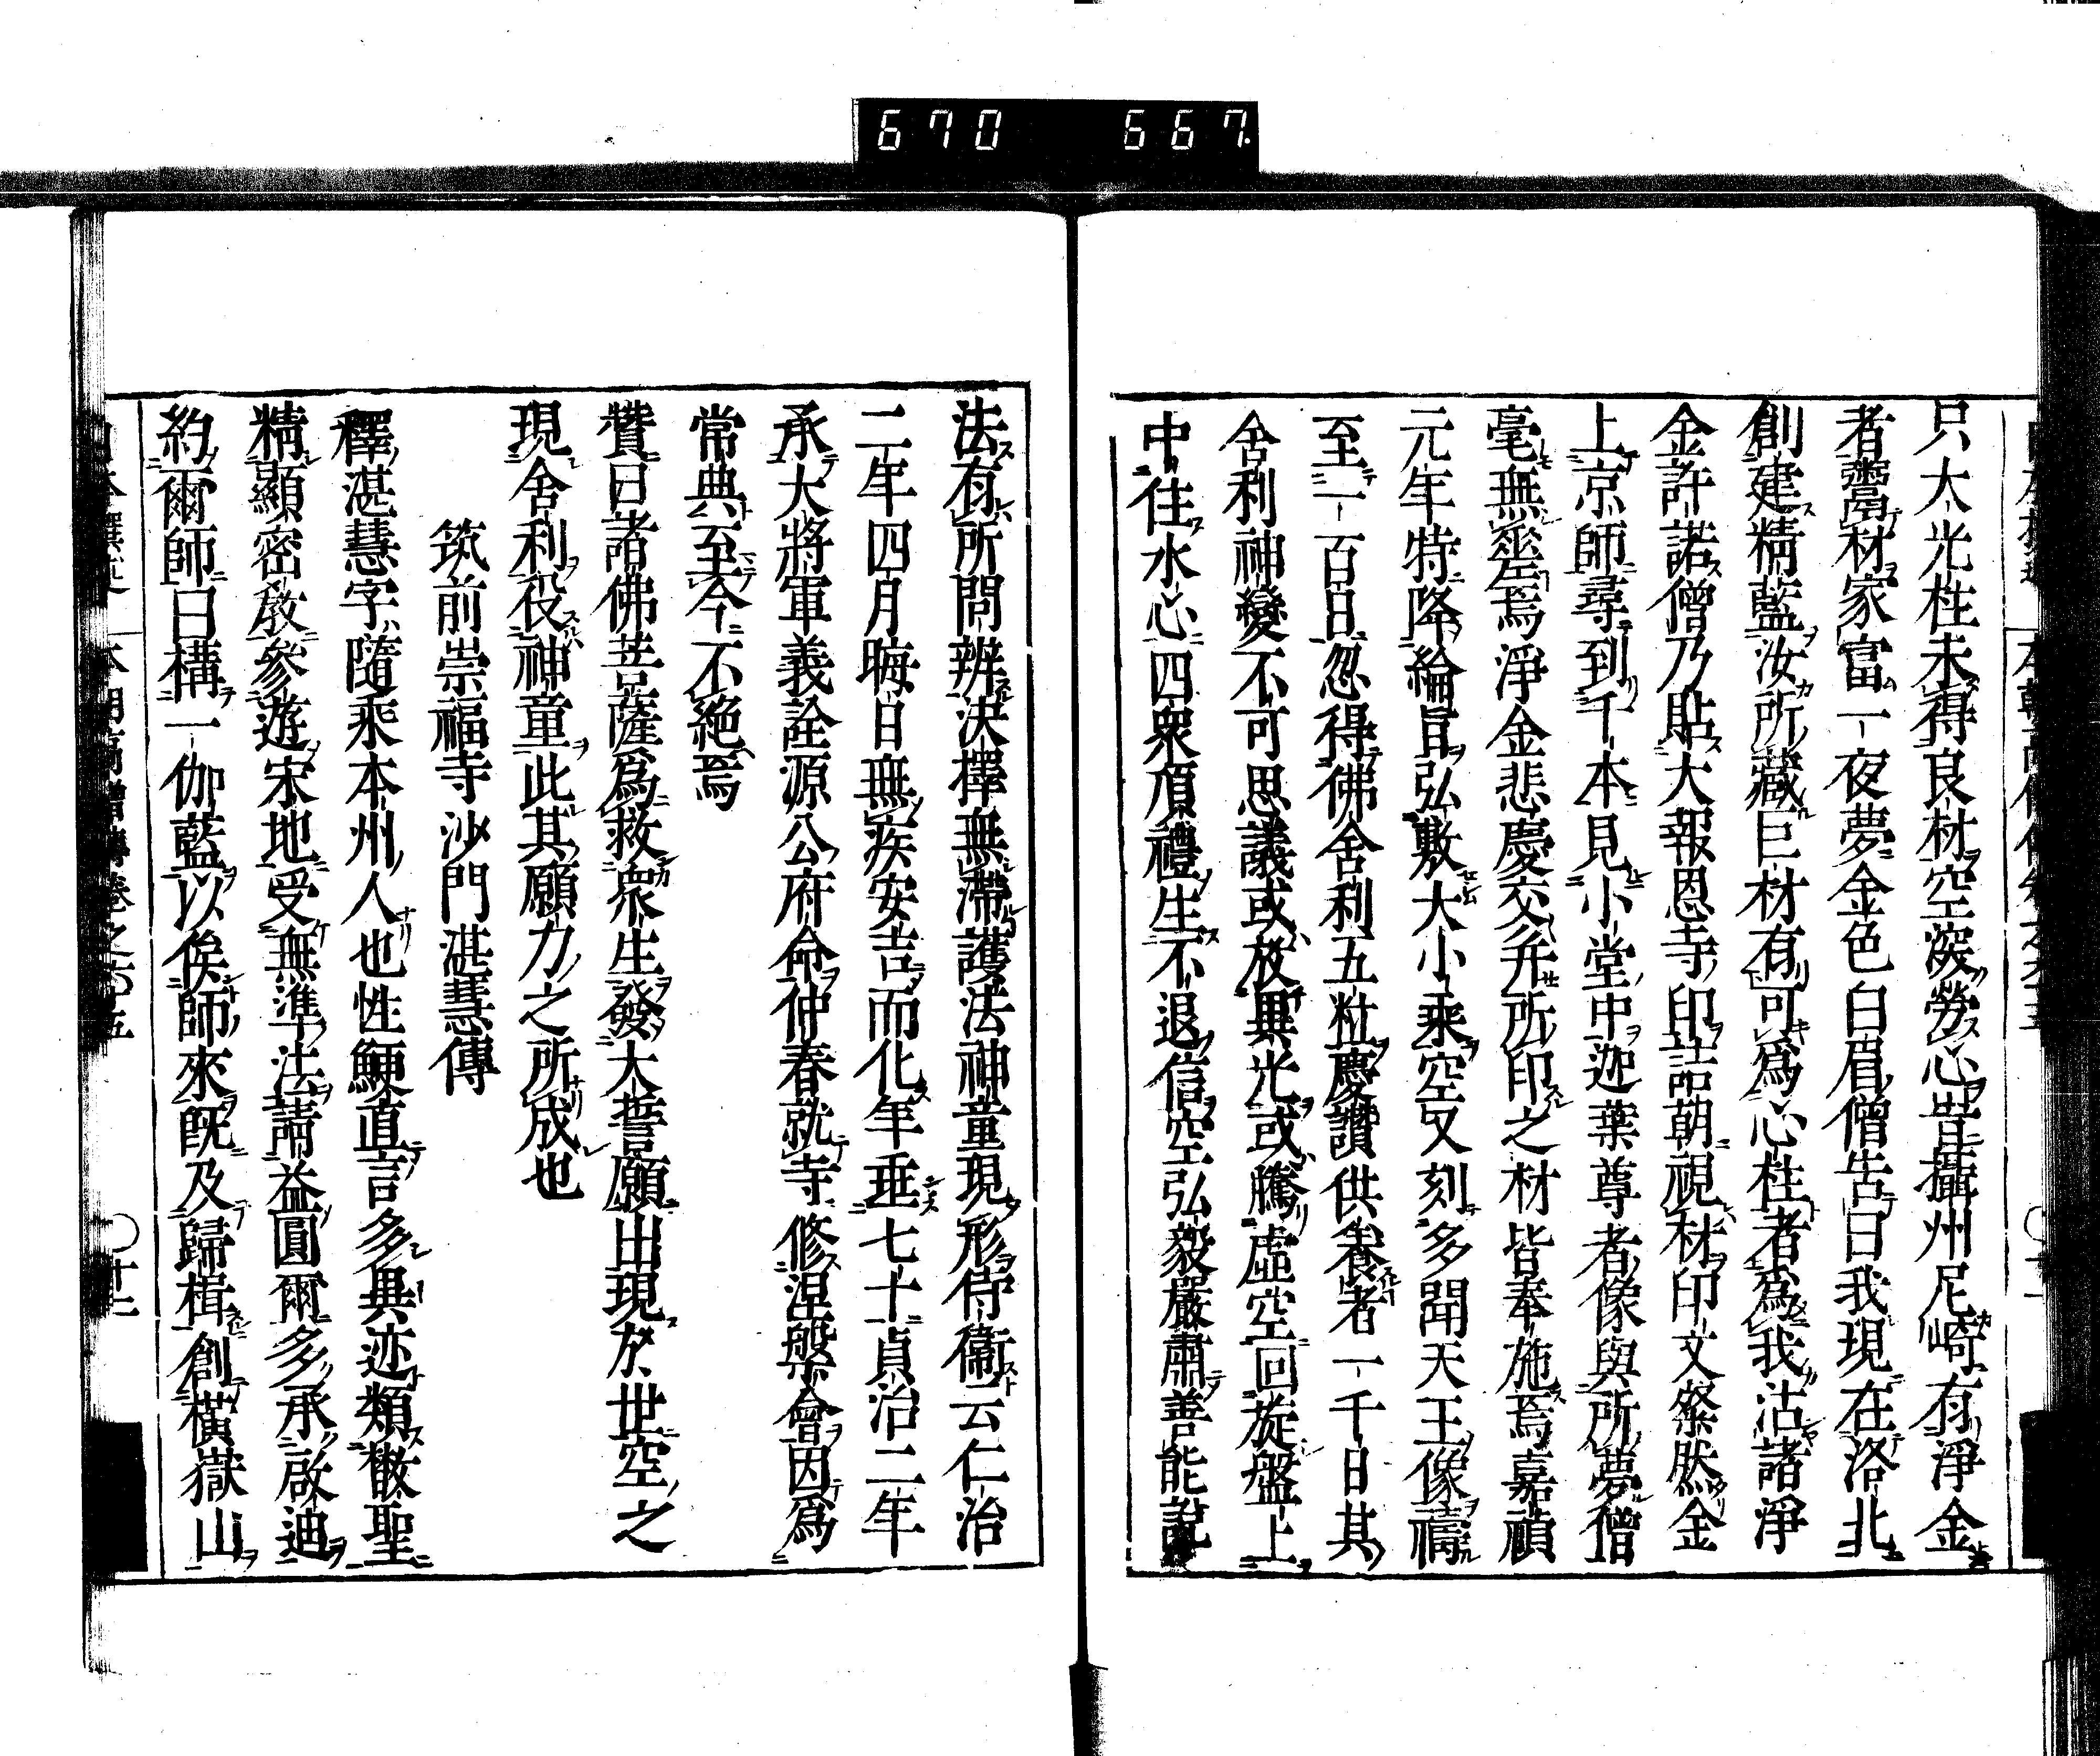 670 667
只大光柱未得良材空淡勞心昔攝州尼崎有淨金
者鬻材家富一夜夢金色白眉僧告曰我現在洛北
創建精藍汝所藏巨材有可爲心柱者爲我沽諸淨
金許諾僧乃貼大報恩寺印詰朝視材印文粲然金
上京師尋到千本見小堂中迦葉尊者像與所夢僧
毫無差焉淨金悲慶交幷所印之材皆奉施焉嘉禎
元年特降綸旨弘敷大小乘空又刻多聞天王像禱
至一百日忽得佛舍利五粒慶讚供養者一千日其
舍利神變不可思議或放異光或騰虛空回旋盤上
中住水心四衆頂禮生不退信空弘毅嚴肅善能說
法有所問辨決擇無滯護法神童現形侍衞云仁治
二年四月晦日無疾安吉而化年垂七十貞治二年
承大將軍義詮源公府命仲春就寺修涅槃會因爲
常典至今不絕焉
贊曰諸佛菩薩爲救衆生發大誓願出現於世空之
現舍利役神童此其願力之所成也
筑前崇福寺沙門湛慧傳
釋湛慧字隨乘本州人也性鯁直言多異迹類散聖
精顯密敎參遊宋地受無準法請益圓爾多承啟迪
約爾師曰構一伽藍以俟師來旣及歸楫創橫嶽山
本朝高僧傳卷之六十五